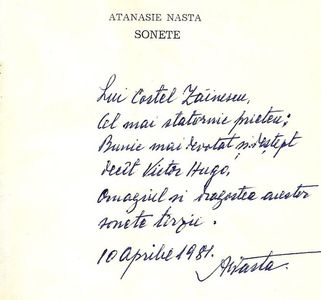 ATANASIE NASTA
SONETE
Lui Costel Zăinescu,
Cel mai statornic prieten;
Bunic mai devotat și deștept
decît Victor Hugo,
Omagiul si dragostea acestor
sonete tîrzii.
10 Aprilie 1981.
ANasta.